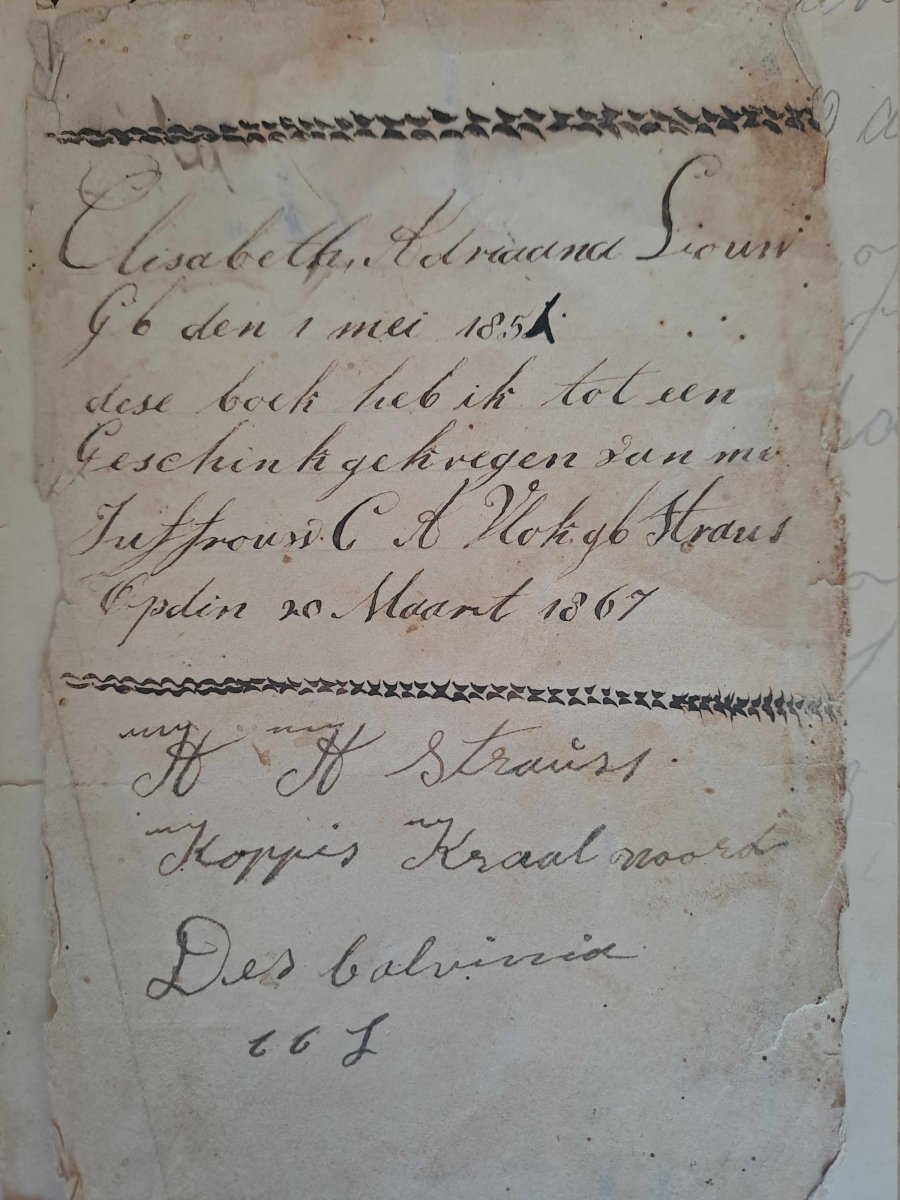 Elisabeth Adriaana Louw
Gb den 1 mei 1851
dese boek heb ik tot een
Geschink gekregen van me
Juffrouw C A Vlok gb Straus
Opdin 20 Maart 1867
H H Strauss
Koppis Kraal noord
Des Calvinia